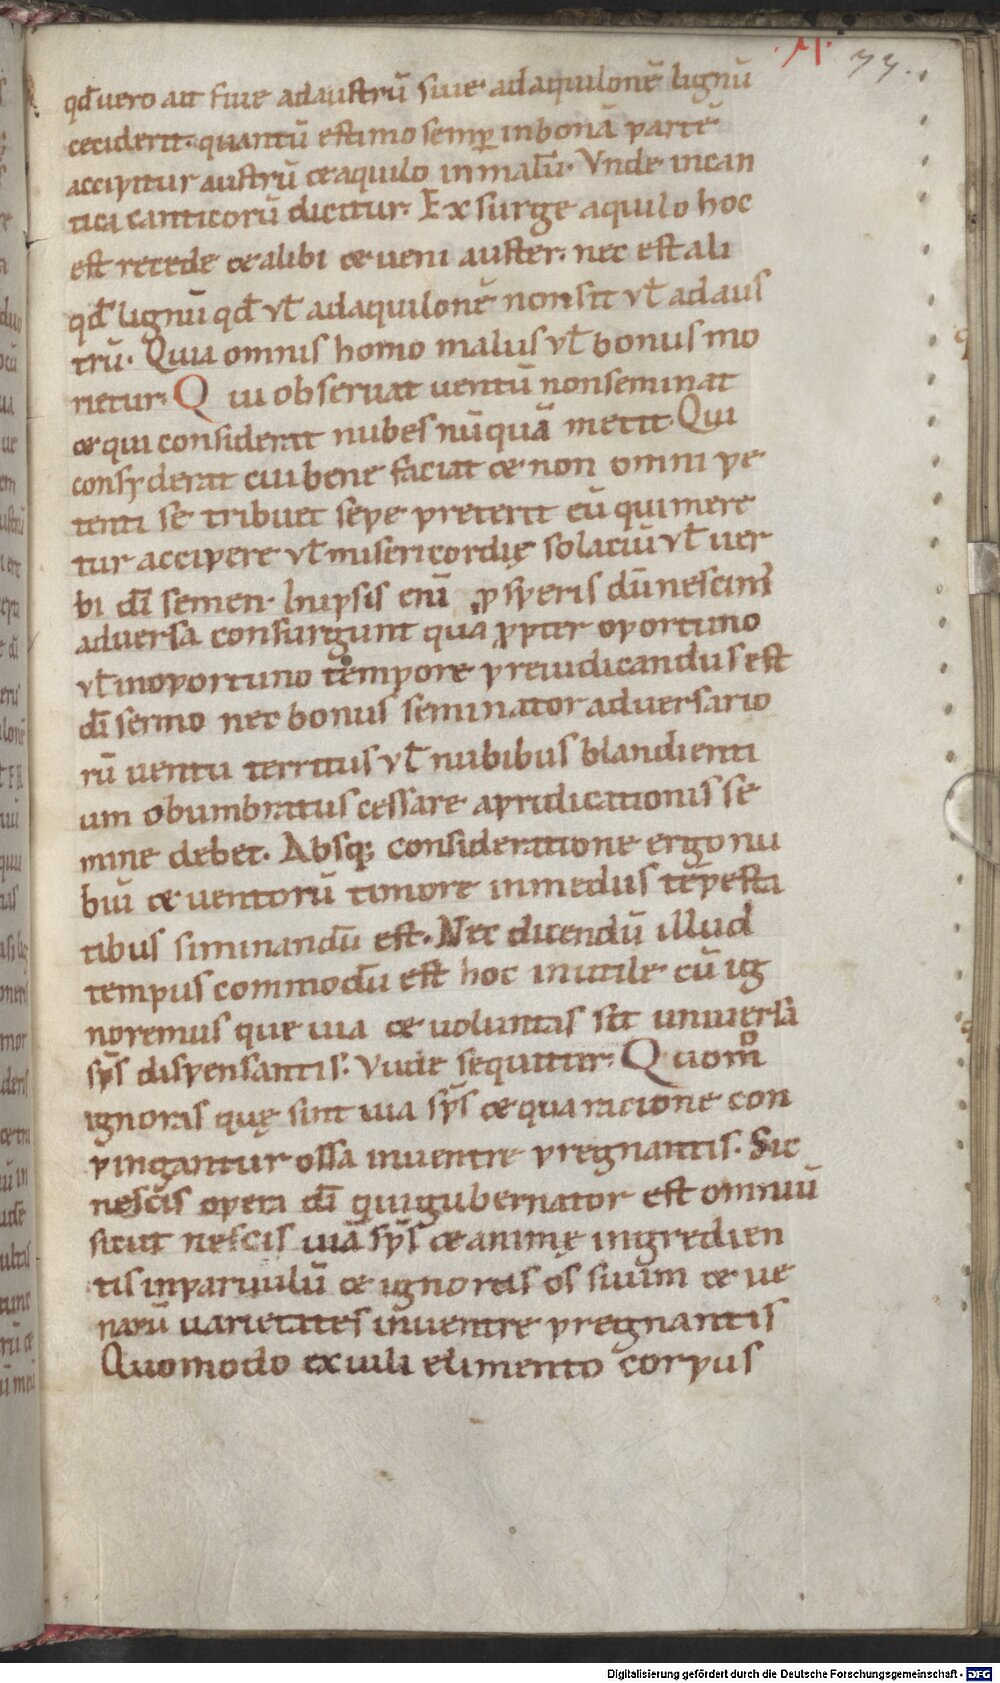 M. 77.
qđ vero ait siue ad austrū siue ad aquilonē lignū
ceciderit. quantū estimo semꝑ in bonā partē
accipitur austrū & aquilo in malū. Vnde in can
tica canticorū dicitur. Exsurge aquilo hoc
est recede & alibi & ueni auster. nec est ali
qđ lignū qđ vł ad aquilonē non sit vł ad aus
trū. Quia omnis homo malus vł bonus mo
rietur. Qui obseruat uentū non seminat
& qui considerat nubes nūquā metit. Qui
consyderat cui bene faciat & non omni pe
tenti se tribuet sepe preterit eū qui mere
tur accipere vł misericordię solaciū vł uer
bi dī semen. In ipsis enī prosperis dū nescim᷒
aduersa consurgunt quā ꝓpter oportuno
vł inoportuno tēmpore preiudicandus est
dī sermo nec bonus seminator aduersario
rū uentu territus vł nubibus blandienti
um obumbratus cessare apridicationis se
mine debet. Absq; consideratione ergo nu
biū & uentorū timore in mediis tēpesta
tibus siminandū est. Nec dicendū illud
tempus commodū est hoc inutile cū ig
noremus que uia & uoluntas sit uniuersa
sp̄s dispensantis. Vnde sequitur. Quomͦ
ignoras quę sint uia sp̄s & qua racione con
pingantur ossa in uentre pregnantis. Sic
nescis opera dī qui gubernator est omniū
sicut nescis uiā sp̄s & animę ingredien
tis in paruulū & ignoras os suum & ue
narū uarietates in uentre pregnantis
Quomodo ex uili elimento corpus
Digitalisierung gefördert durch die Deutsche Forschungsgemeinschaft - DFG